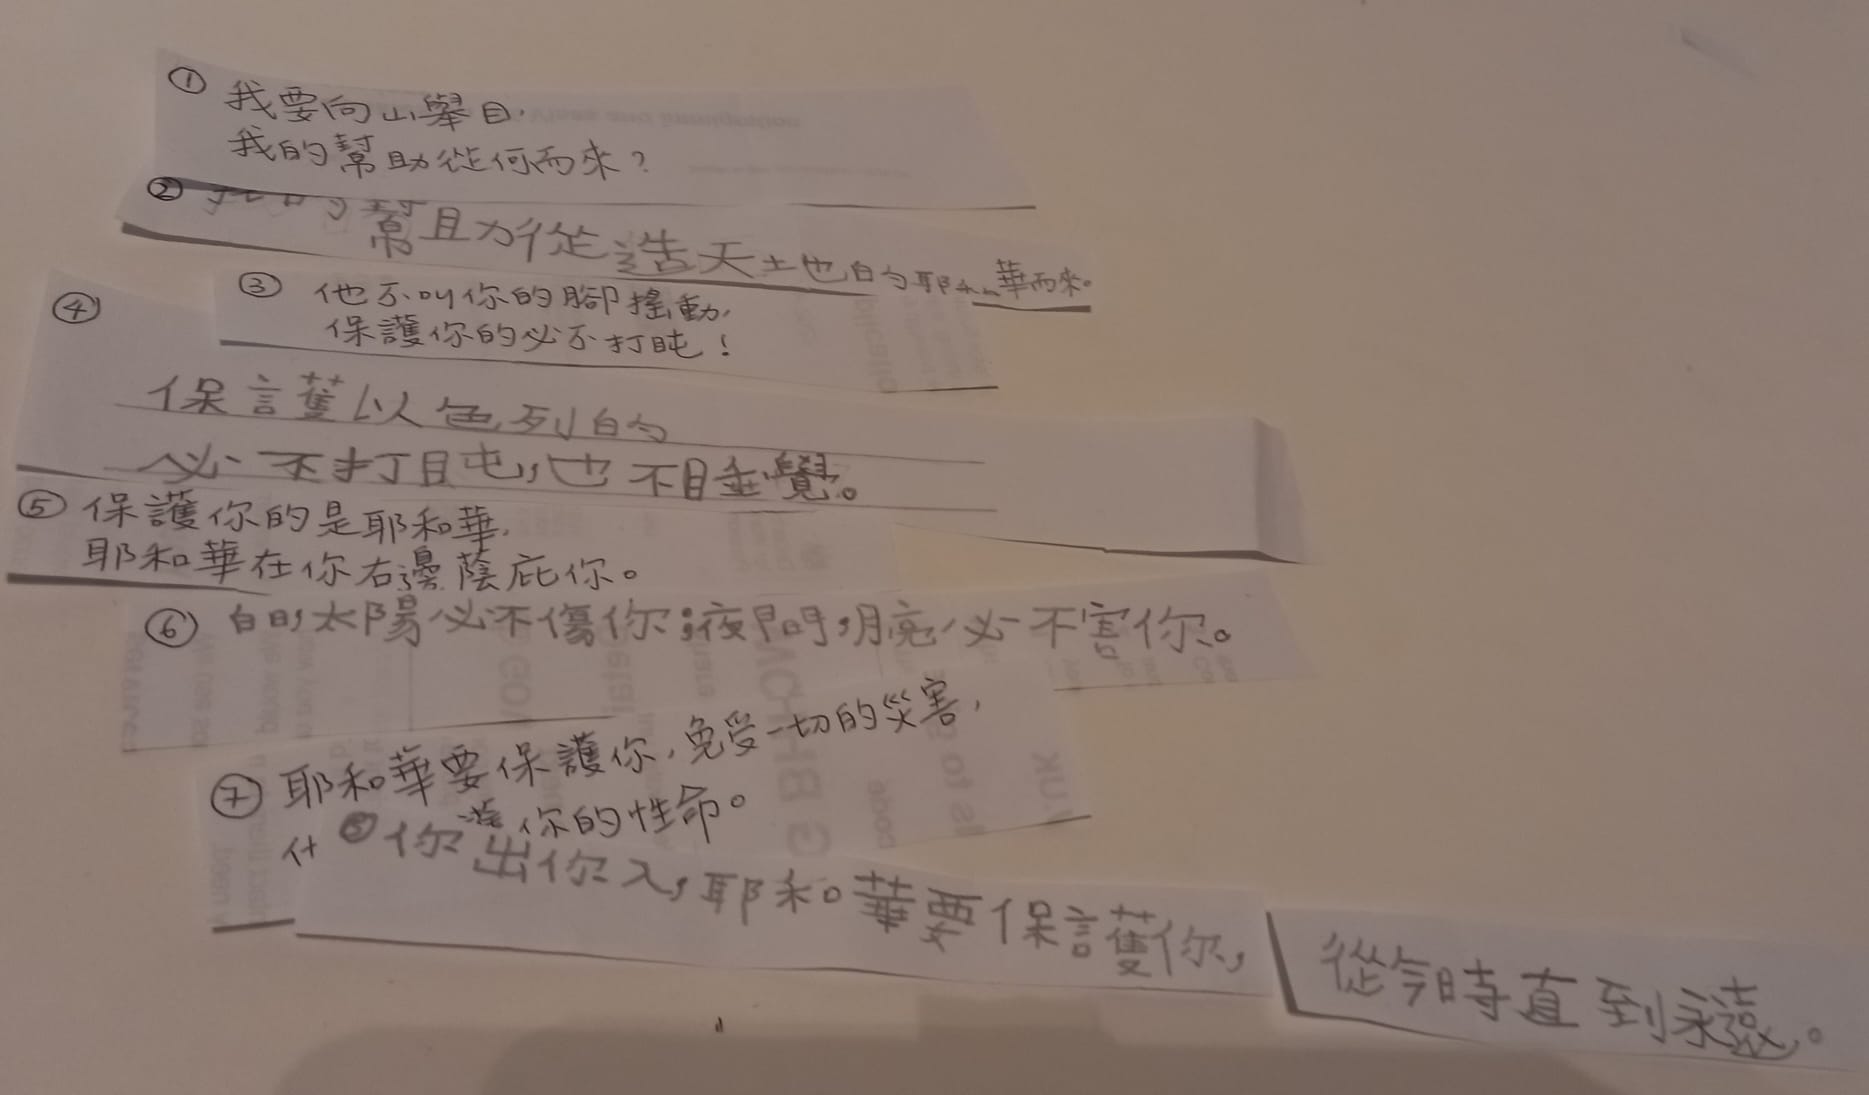 ① 我要向山舉目，
我的幫助從何而來？
② 幫助從造天地的耶和華而來。
③ 他不叫你的腳搖動，
保護你的必不打盹！
④
保護以色列的
必不打盹，也不睡覺。
⑤ 保護你的是耶和華，
耶和華在你右邊蔭庇你。
⑥ 白日，太陽必不傷你；夜間，月亮必不害你。
⑦ 耶和華要保護你，免受一切的災害，
你的性命。
⑧ 你出你入，耶和華要保護你，
從今時直到永遠。